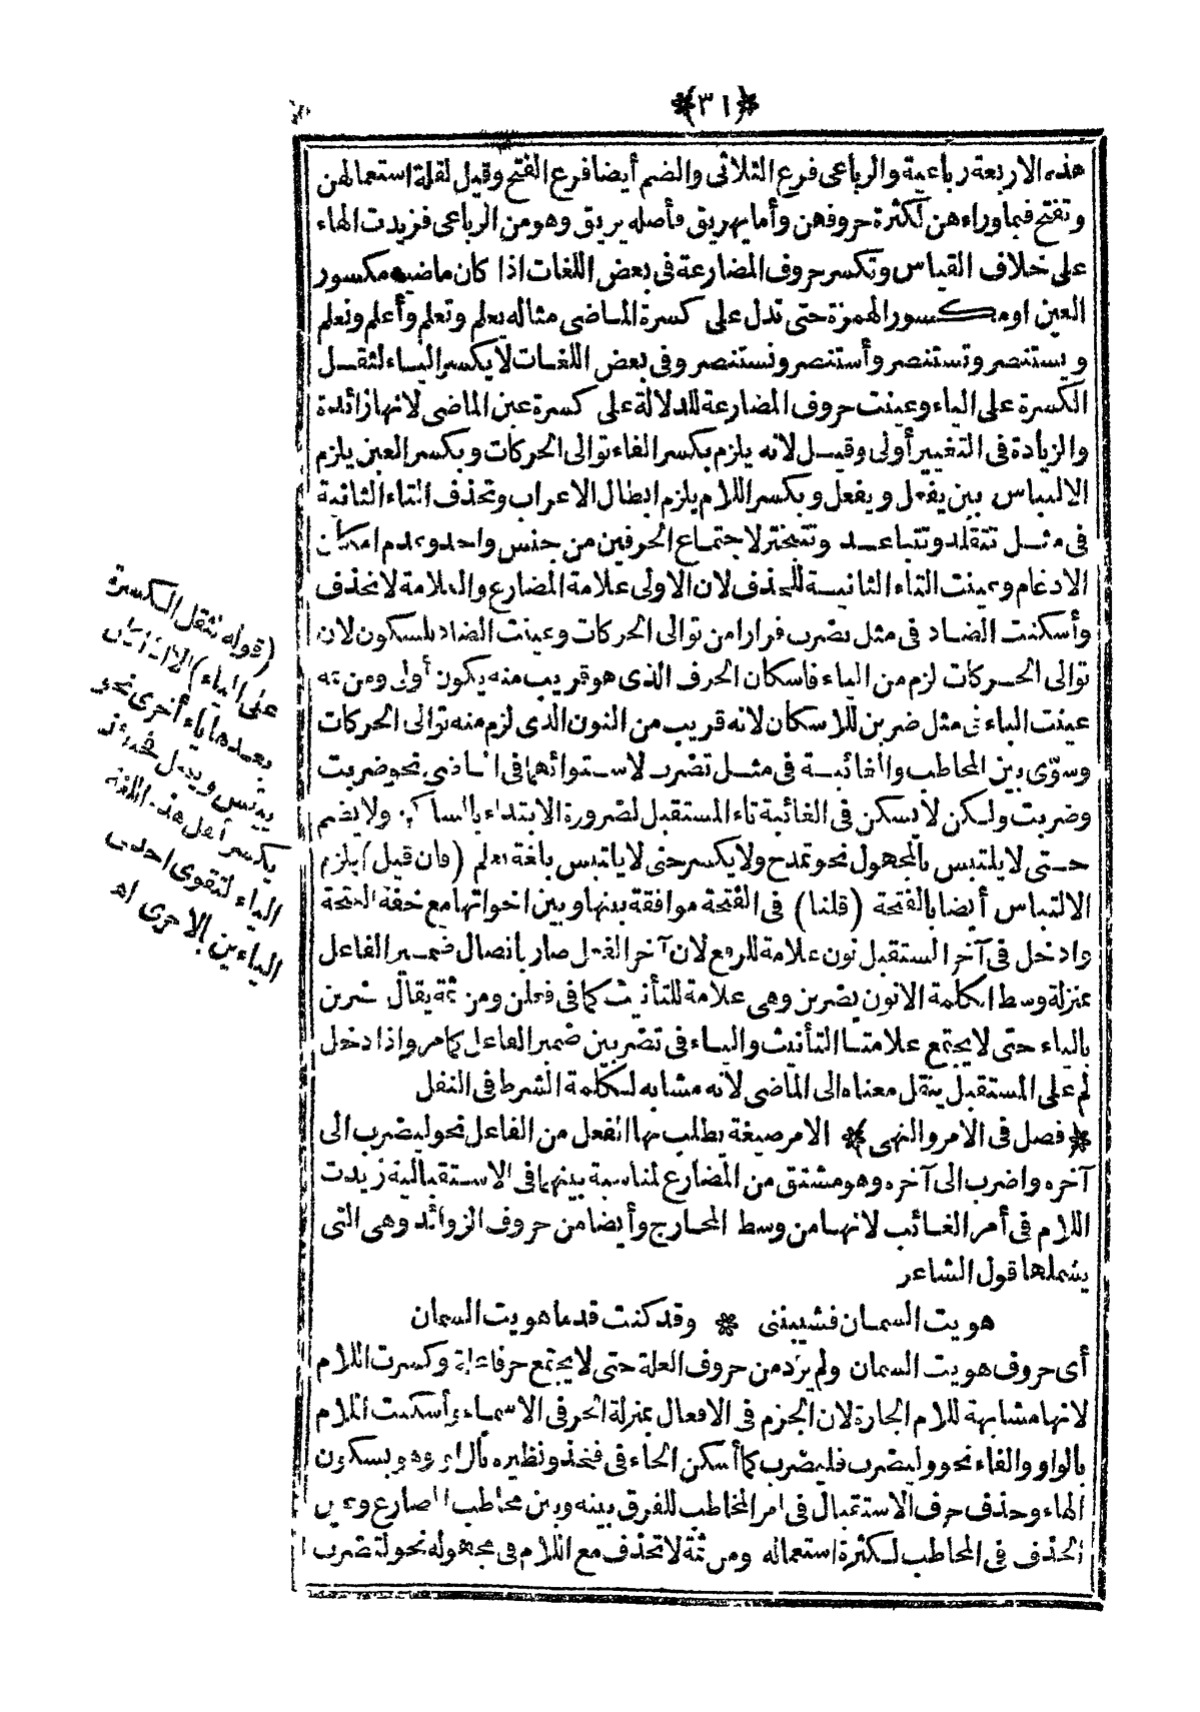 ﴿٣١﴾
هذه الاربعة رباعية والرباعى فرع الثلاثى والضم أيضا فرع الفتح وقيل لقلة استعمالهن
وتفتح فيما وراءهن لكثرة حروفهن وأما يهريق فأصله يريق وهو من الرباعى فزيدت الهاء
على خلاف القياس وتكسر حروف المضارعة فى بعض اللغات اذا كان ماضيه مكسور
العين او مكسور الهمزة حتى تدل على كسرة الماضى مثاله يعلم وتعلم وأعلم ونعلم
ويستنصر وتستنصر وأستنصر ونستنصر وفى بعض اللغات لا يكسر الياء لثقل
الكسرة على الياء وعينت حروف المضارعة للدلالة على كسرة عين الماضى لانها زائدة
والزيادة فى التغيير أولى وقيل لانه يلزم بكسر الفاء توالى الحركات وبكسر العين يلزم
الالتباس بين يفعل ويفعل وبكسر اللام يلزم ابطال الاعراب وتحذف التاء الثانية
فى مثل تتقلد وتتباعد وتتبختر لاجتماع الحرفين من جنس واحد وعدم امكان
الادغام وعينت التاء الثانية للحذف لان الاولى علامة المضارع والعلامة لا تحذف
وأسكنت الضاد فى مثل يضرب فرارا من توالى الحركات وعينت الضاد للسكون لان
توالى الحركات لزم من الياء فاسكان الحرف الذى هو قريب منه يكون أولى ومن ثمه
عينت الباء فى مثل ضربن للاسكان لانه قريب من النون الذى لزم منه توالى الحركات
وسوّى بين المخاطب والغائبة فى مثل تضرب لاستوائهما فى الماضى نحو ضربت
وضربت ولكن لا يسكن فى الغائبة تاء المستقبل لضرورة الابتداء بالساكن ولا يضم
حتى لا يلتبس بالمجهول نحو تمدح ولا يكسر حتى لا يلتبس بلغة تعلم (فان قيل) يلزم
الالتباس أيضا بالفتحة (قلنا) فى الفتحة موافقة بينها وبين اخواتها مع خفة الفتحة
وادخل فى آخر المستقبل نون علامة للرفع لان آخر الفعل صار باتصال ضمير الفاعل
بمنزلة وسط الكلمة الا نون يضربن وهى علامة للتأنيث كما فى فعلن ومن ثمة يقال يضربن
بالياء حتى لا يجتمع علامتا التأنيث والياء فى تضربين ضمير الفاعل كما مر واذا دخل
لم على المستقبل ينقل معناه الى الماضى لانه مشابه لكلمة الشرط فى النقل
﴿فصل فى الامر والنهى﴾ الامر صيغة يطلب بها الفعل من الفاعل نحو ليضرب الى
آخره واضرب الى آخره وهو مشتق من المضارع لمناسبة بينهما فى الاستقبالية زيدت
اللام فى أمر الغائب لانها من وسط المخارج وأيضا من حروف الزوائد وهى التى
يشملها قول الشاعر
هويت السمان فشيبننى * وقد كنت قدما هويت السمان
أى حروف هويت السمان ولم يزد من حروف العلة حتى لا يجتمع حرفا علة وكسرت اللام
لانها مشابهة للام الجارة لان الجزم فى الافعال بمنزلة الجر فى الاسماء وأسكنت اللام
بالواو والفاء نحو وليضرب فليضرب كما أسكن الخاء فى فخذ ونظيره بالواو وهو بسكون
الهاء وحذف حرف الاستقبال فى امر المخاطب للفرق بينه وبين مخاطب المضارع وعين
الحذف فى المخاطب لكثرة استعماله ومن ثمة لا تحذف مع اللام فى مجهوله نحو لتضرب
(قوله لثقل الكسرة
على الياء) الا اذا كان
بعدها ياء أخرى نحو
ييئس وييجل فحينئذ
يكسر أهل هذه اللغة
الياء لتقوى احدى
الياءين بالاخرى اه